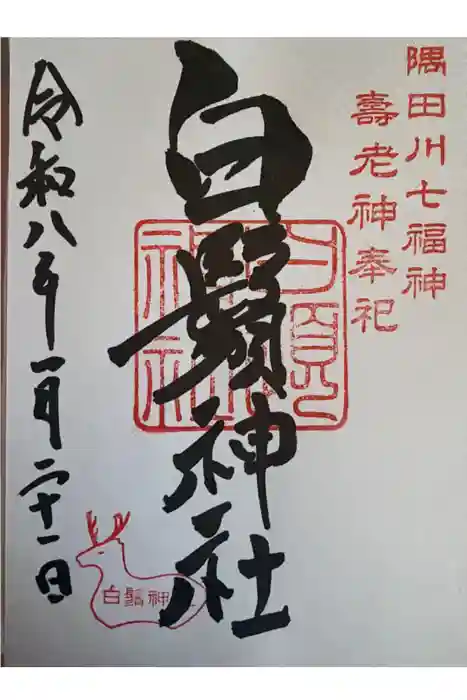 隅田川七福神
壽老神奉祀
白鬚神社
令和八年一月二十一日
白鬚神社